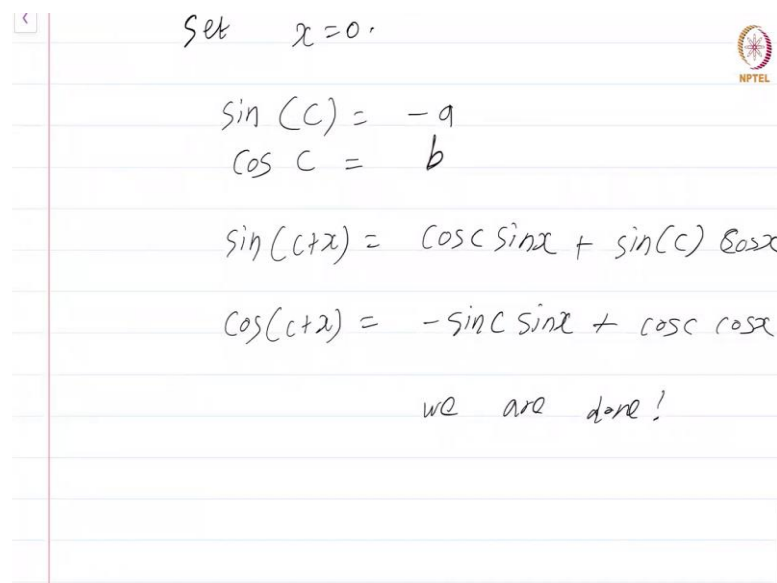 Set x=0.
NPTEL
sin (C) = -a
cos C = b
sin(c+x) = cosc sinx + sin(c) cosx
cos(c+x) = -sinc sinx + cosc cosx
we are done!